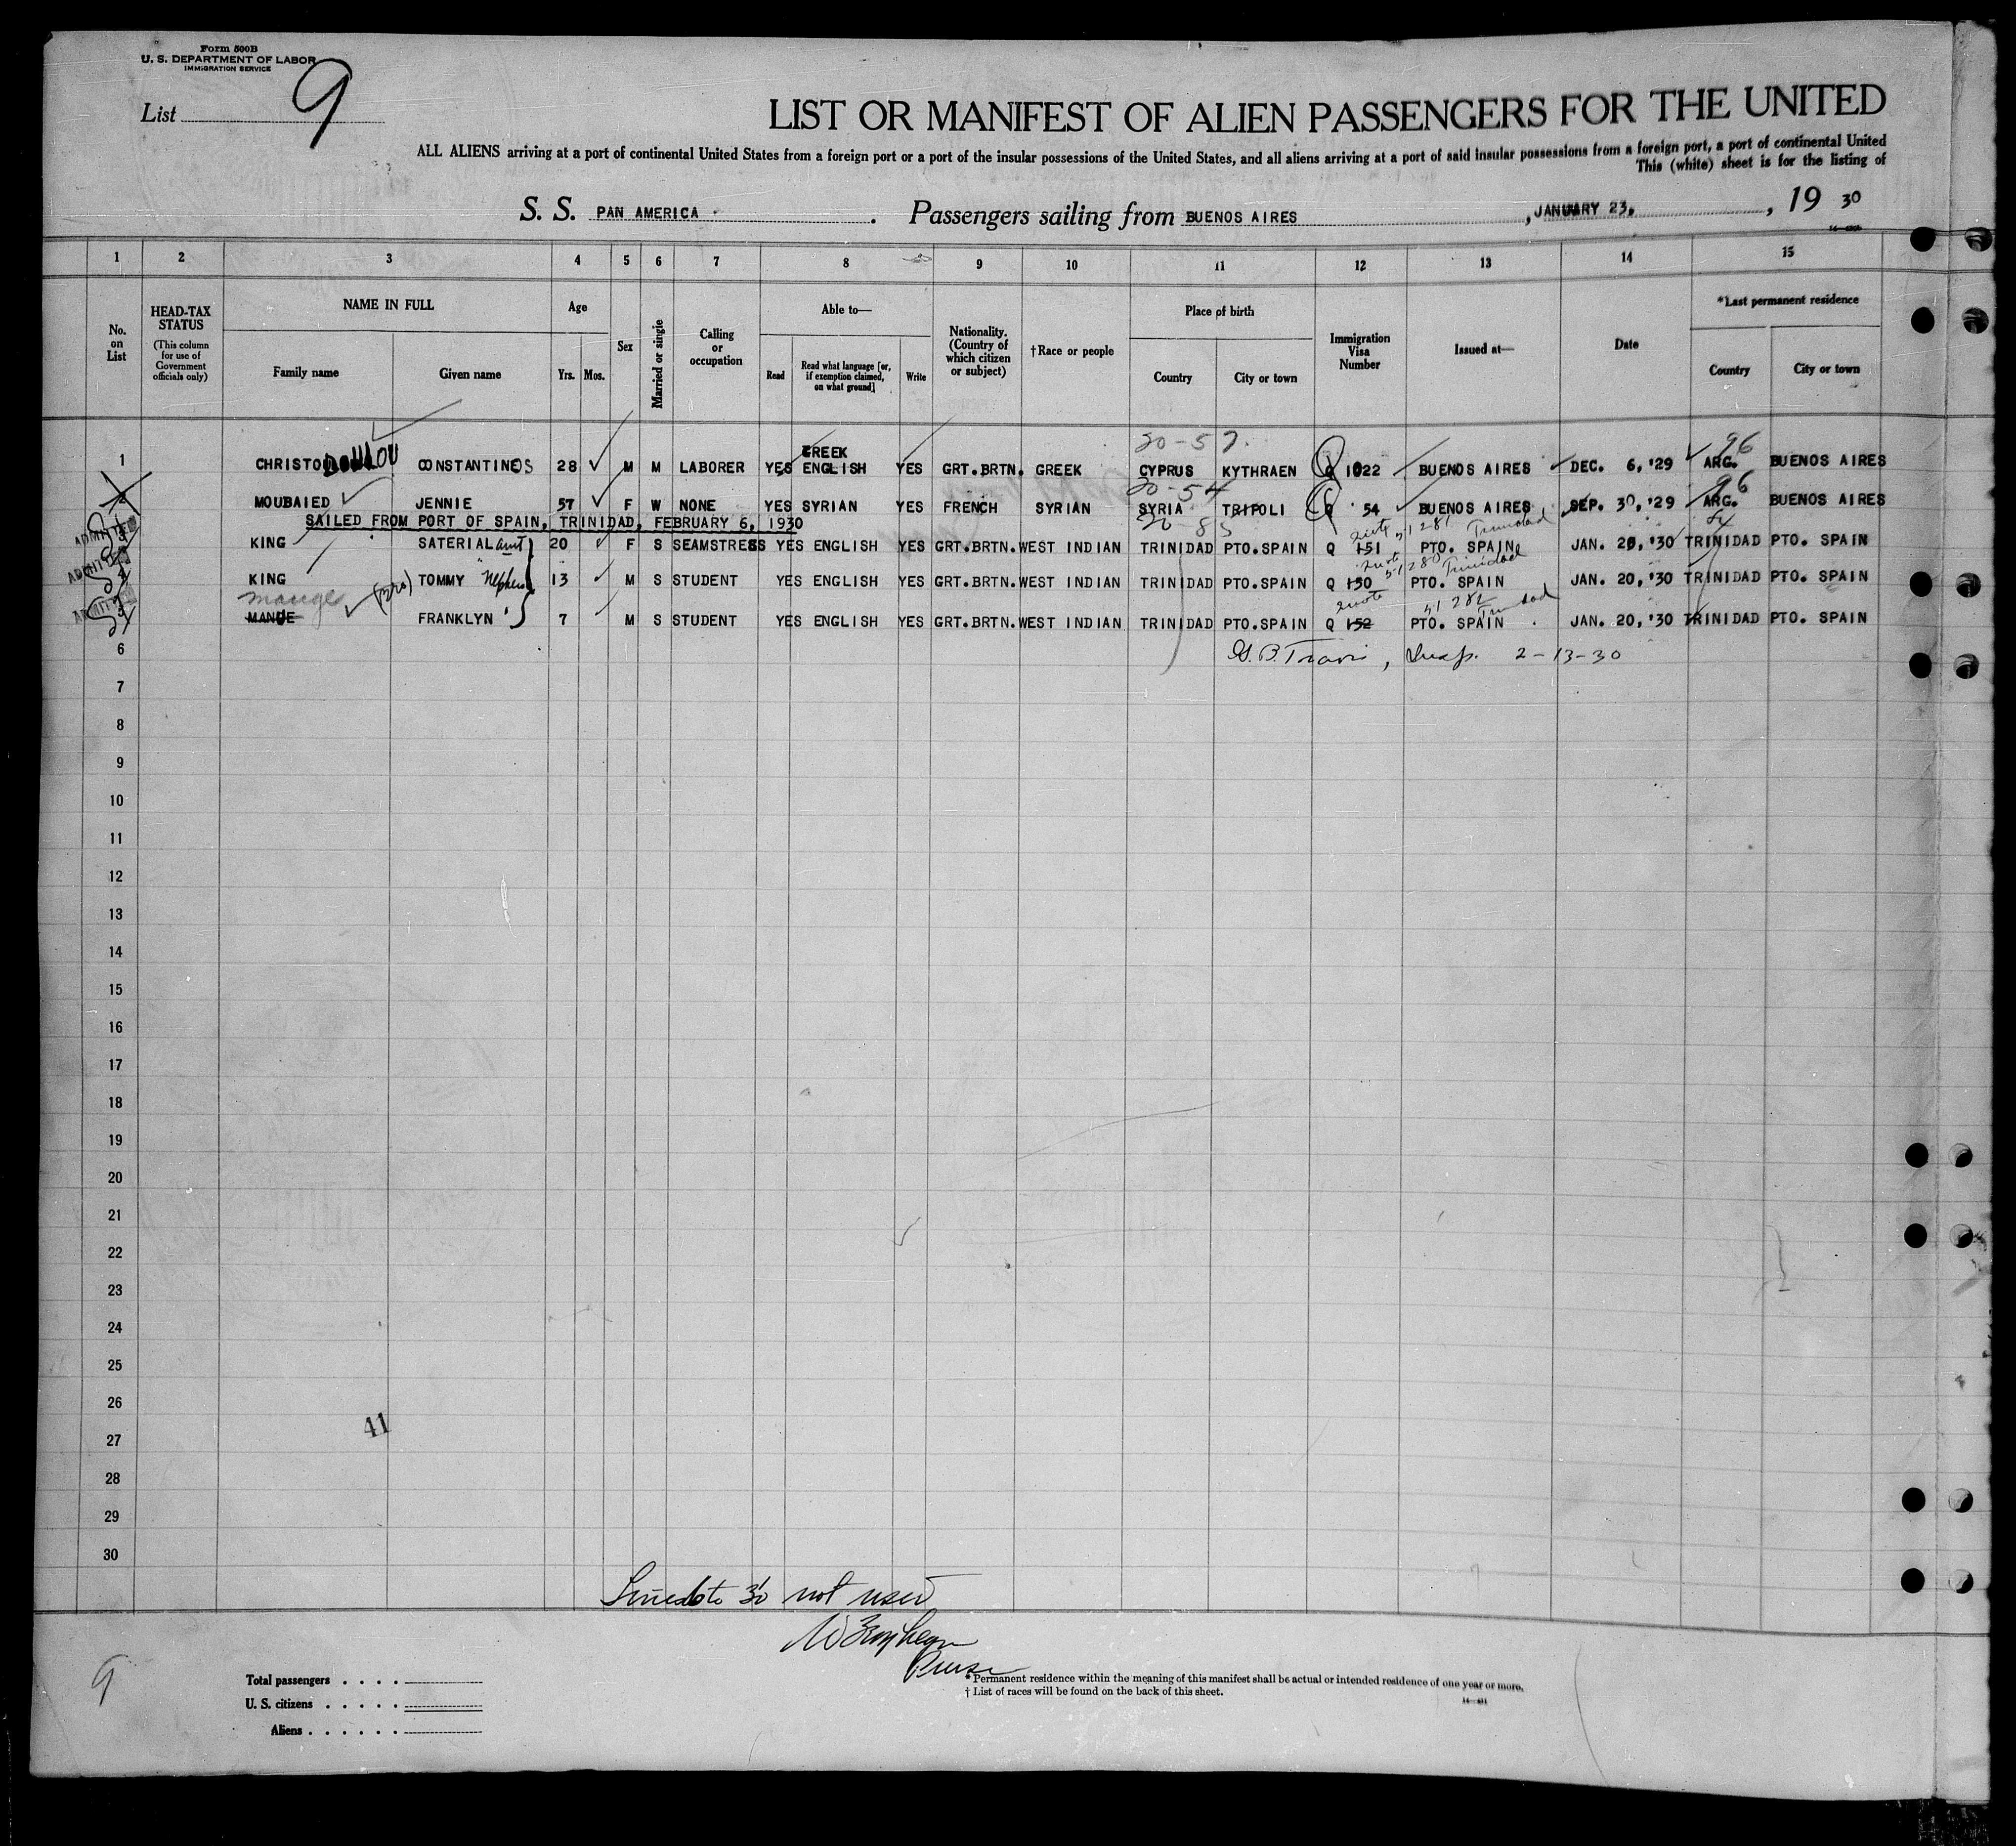 Form 500B
U. S. DEPARTMENT OF LABOR
IMMIGRATION SERVICE
List 9
LIST OR MANIFEST OF ALIEN PASSENGERS FOR THE UNITED
ALL ALIENS arriving at a port of continental United States from a foreign port or a port of the insular possessions of the United States, and all aliens arriving at a port of said insular possessions from a foreign port, a port of continental United
This (white) sheet is for the listing of
S. S. PAN AMERICA . Passengers sailing from BUENOS AIRES , JANUARY 23, , 19 30
1 2 3 4 5 6 7 8 9 10 11 12 13 14 15
No. on List
HEAD-TAX STATUS
(This column for use of Government officials only)
NAME IN FULL
Family name Given name
Age
Yrs. Mos.
Sex
Married or single
Calling or occupation
Able to—
Read Read what language [or, if exemption claimed, on what ground] Write
Nationality. (Country of which citizen or subject)
†Race or people
Place of birth
Country City or town
Immigration Visa Number
Issued at—
Date
*Last permanent residence
Country City or town
20-57. 96
GREEK
1 CHRISTODOULOU CONSTANTINOS 28 M M LABORER YES ENGLISH YES GRT.BRTN. GREEK CYPRUS KYTHRAEN Q 1022 BUENOS AIRES DEC. 6, '29 ARG. BUENOS AIRES
20-54 96
2 MOUBAIED JENNIE 57 F W NONE YES SYRIAN YES FRENCH SYRIAN SYRIA TRIPOLI Q 54 BUENOS AIRES SEP. 30, '29 ARG. BUENOS AIRES
SAILED FROM PORT OF SPAIN, TRINIDAD, FEBRUARY 6, 1930
20-85 51281 Trinidad
ADMITTED 3 KING SATERIAL aunt 20 F S SEAMSTRESS YES ENGLISH YES GRT.BRTN. WEST INDIAN TRINIDAD PTO.SPAIN Q 151 PTO. SPAIN JAN. 20, '30 TRINIDAD PTO. SPAIN
51280 Trinidad
ADMITTED 4 KING (Bro) TOMMY Nephew 13 M S STUDENT YES ENGLISH YES GRT.BRTN. WEST INDIAN TRINIDAD PTO.SPAIN Q 150 PTO. SPAIN JAN. 20, '30 TRINIDAD PTO. SPAIN
mange 51282 Trinidad
ADMITTED 5 MANUE FRANKLYN " 7 M S STUDENT YES ENGLISH YES GRT.BRTN. WEST INDIAN TRINIDAD PTO.SPAIN Q 152 PTO. SPAIN JAN. 20, '30 TRINIDAD PTO. SPAIN
6 G. B. Travis, Insp. 2-13-30
7
8
9
10
11
12
13
14
15
16
17
18
19
20
21
22
23
24
25
26
41
27
28
29
30
Lines 6 to 30 not used
Purser
9
Total passengers . . . .
U. S. citizens . . . . .
Aliens . . . . . .
* Permanent residence within the meaning of this manifest shall be actual or intended residence of one year or more.
† List of races will be found on the back of this sheet.